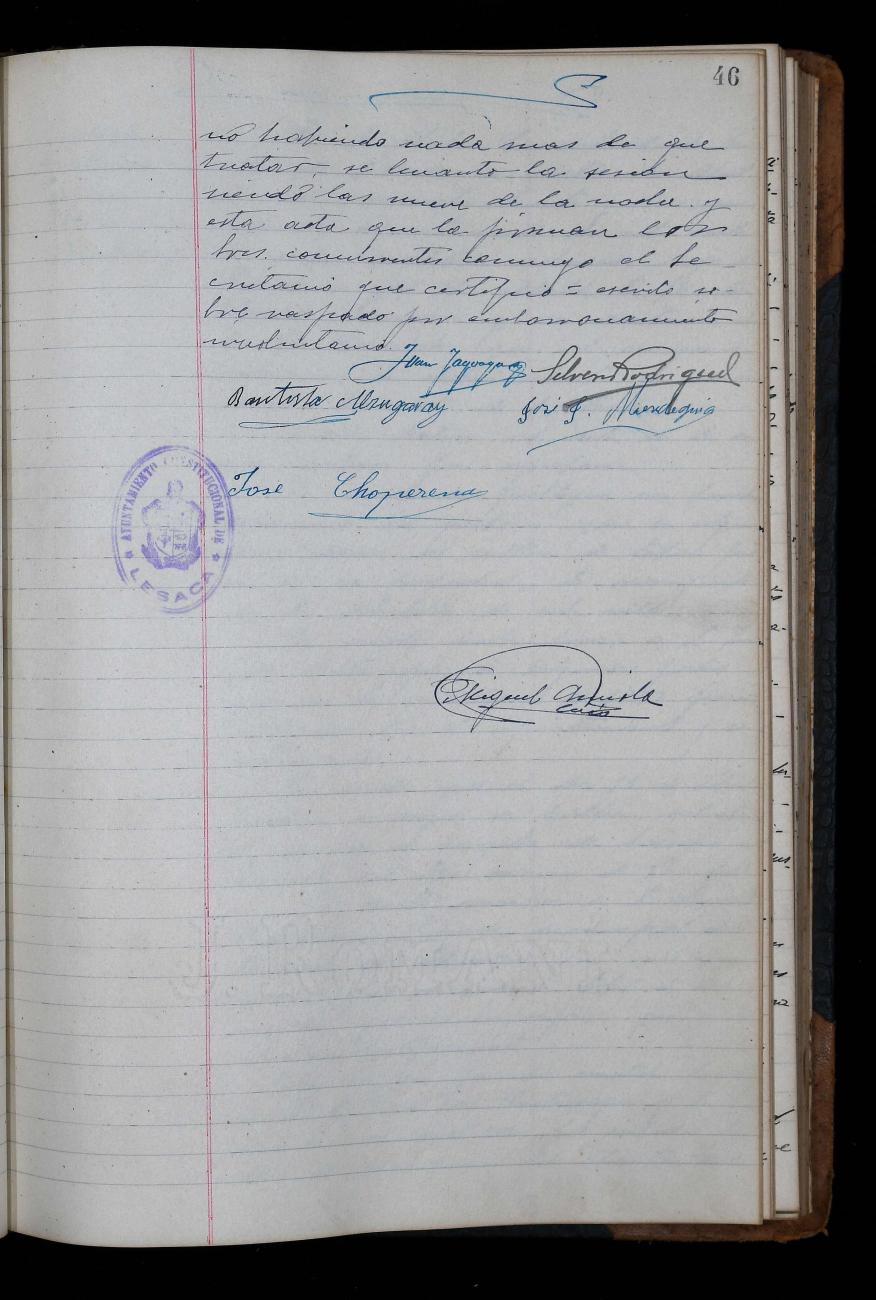 46
no habiendo nada mas de que
tratar, se levanto la sesion
siendo las nueve de la noche. y
esta acta que la firman los
Sres. concurrentes conmigo el Se-
cretario que certifico = escrito so-
bre raspado por emborronamiento
involuntario.
Juan Silverio Rodriguez
Bautista José F.
AYUNTAMIENTO CONSTITUCIONAL DE
LESACA
Jose Choperena
Miguel